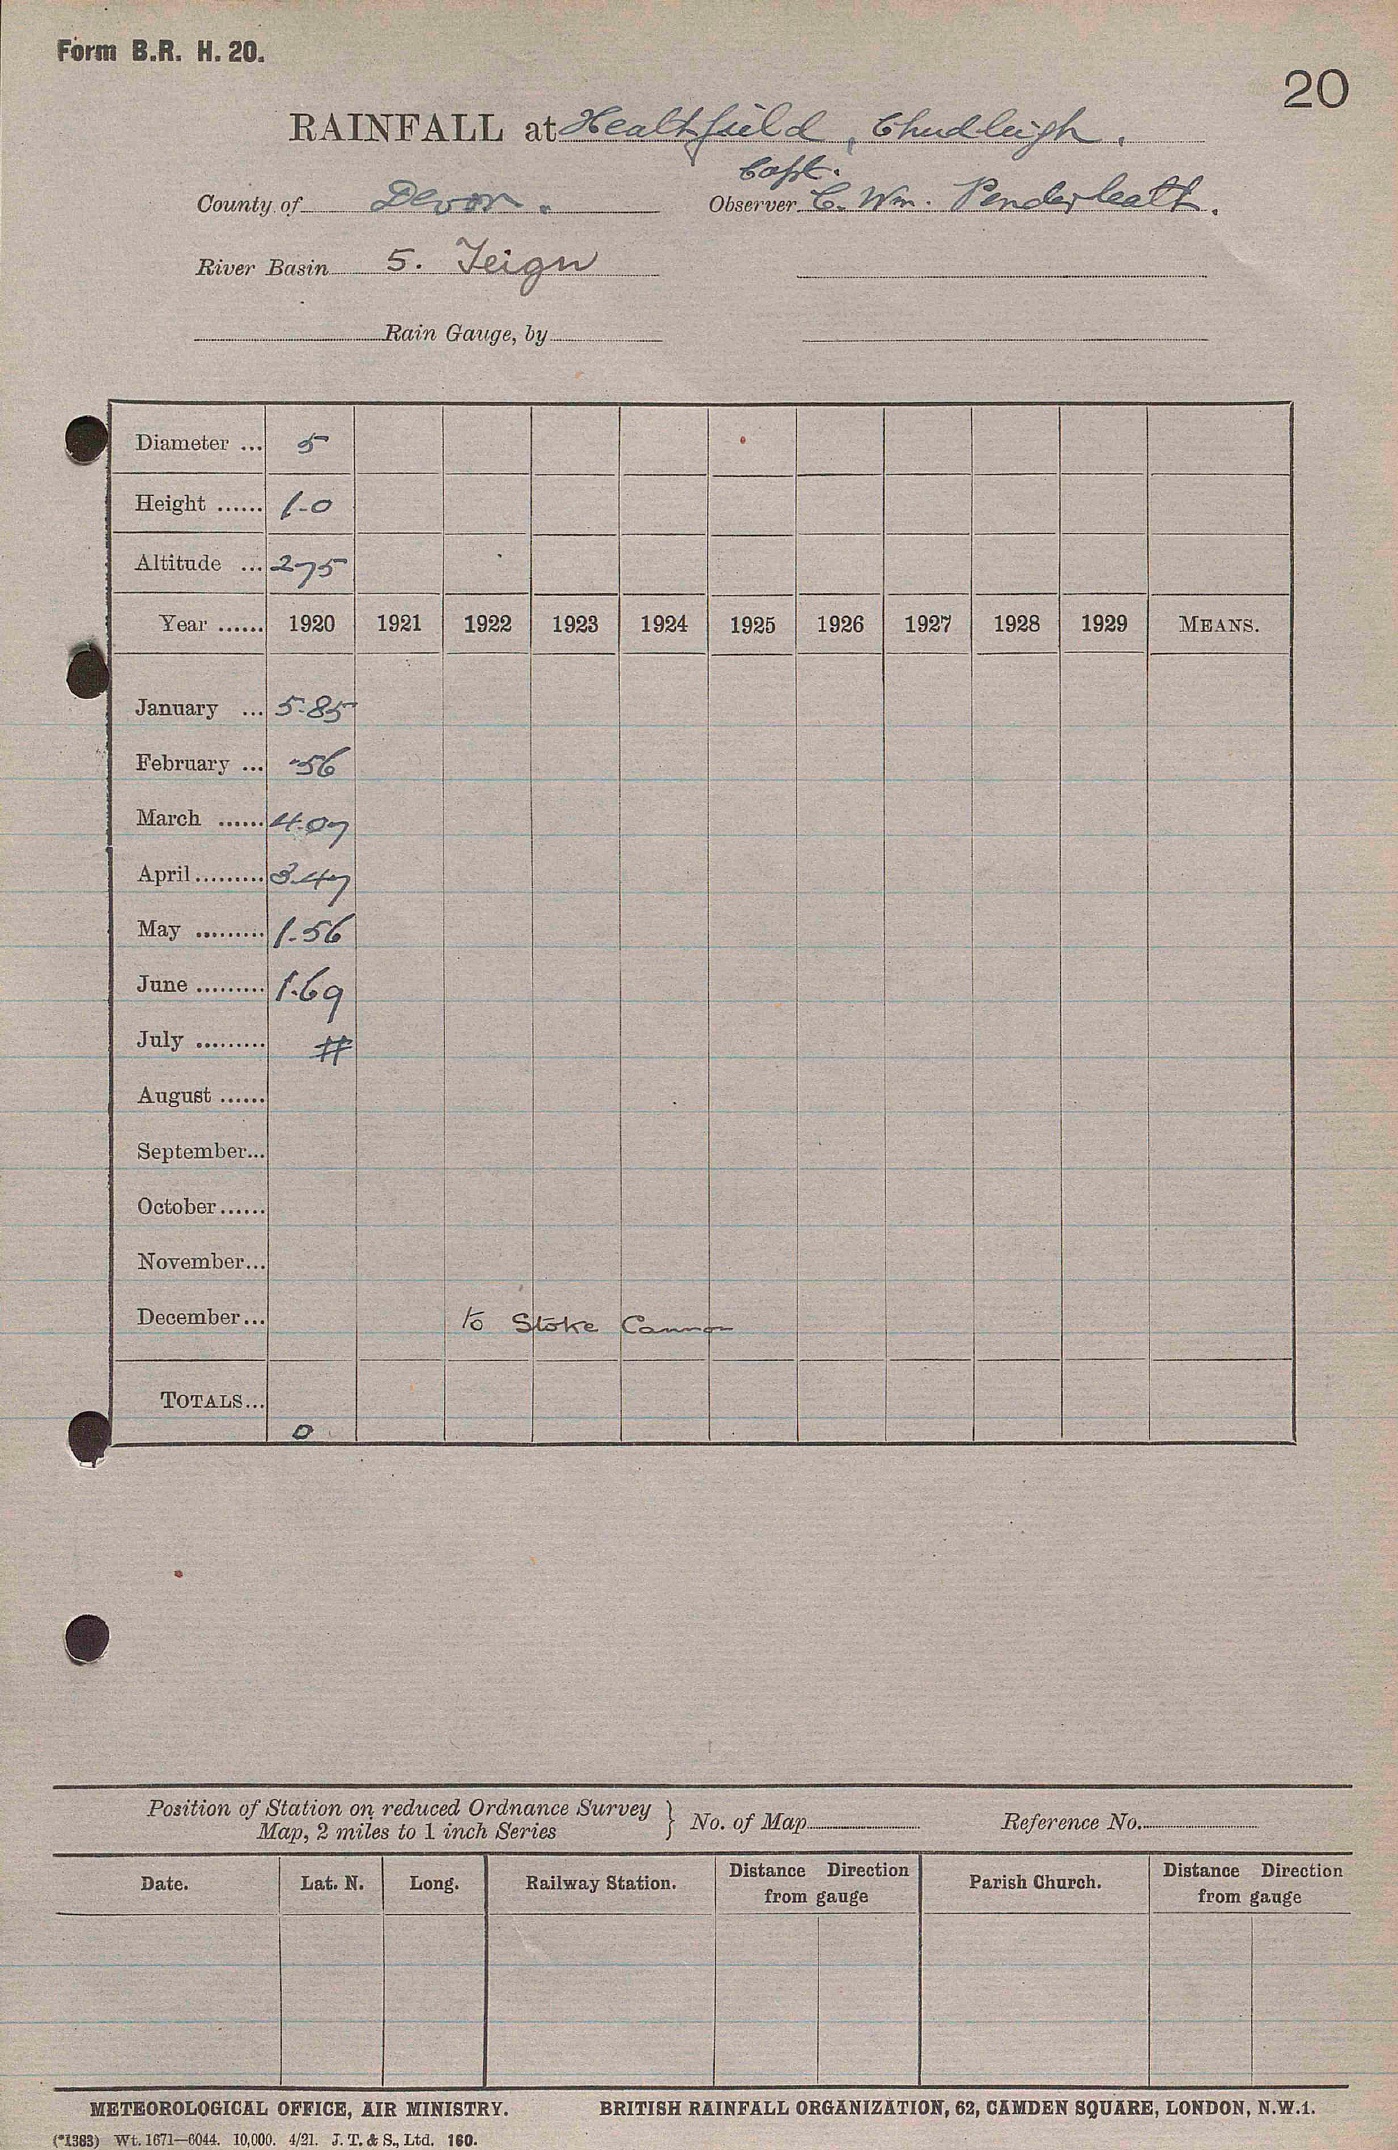 Form B.R. H. 20.
20
RAINFALL at Heathfield, Chudleigh.
Capt.
County of Devon. Observer C. Wm. Penderleath.
River Basin 5. Teign
Rain Gauge, by
Diameter ... 5
Height ...... 1-0
Altitude ... 275
Year ...... 1920 1921 1922 1923 1924 1925 1926 1927 1928 1929 MEANS.
January ... 5.85
February ... .56
March ...... 4.07
April ......... 3.47
May ......... 1.56
June ......... 1.69
July ......... #
August ......
September...
October......
November...
December... to Stoke Cannon
TOTALS...
0
Position of Station on reduced Ordnance Survey
Map, 2 miles to 1 inch Series } No. of Map Reference No.
Date. Lat. N. Long. Railway Station. Distance Direction from gauge Parish Church. Distance Direction from gauge
METEOROLOGICAL OFFICE, AIR MINISTRY. BRITISH RAINFALL ORGANIZATION, 62, CAMDEN SQUARE, LONDON, N.W.1.
(*1383) Wt. 1671—6044. 10,000. 4/21. J. T. & S., Ltd. 160.